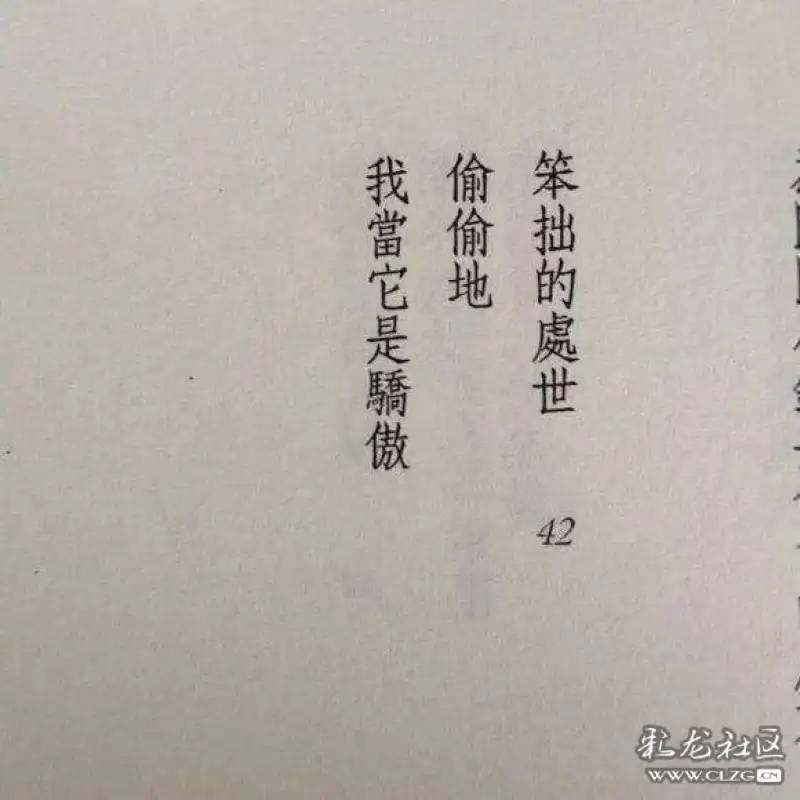 笨拙的處世 42
偷偷地
我當它是驕傲
彩龙社区
WWW.CLZG.CN